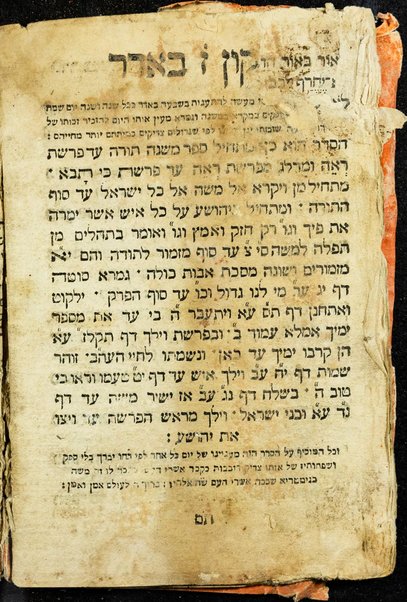 אור באור הח
קון ז באדר
מעשה להתענות בשבעה באדר בכל שנה ושנה יום שמת
במקרא במשנה ובגמרא מעין אותו היום להזכיר זכותו של
לפי שגדולים צדיקים במיתתם יותר מחייהם :
הסדר הוא כך מתחיל ספר משנה תורה עד פרשת
ראה ומדלג מפרשת ראה עד פרשת כי תבא
מתחיל מן ויקרא אל משה אל כל ישראל עד סוף
התורה ׃ ומתחיל ביהושע על כל איש אשר ימרה
את פיך וגו׳ רק חזק ואמץ וגו׳ ואומר בתהלים מן
תפלה למשה סי׳ צ׳ עד סוף מזמור לתודה והם י״א
מזמורים ושונה מסכת אבות כולה ׃ גמרא סוטה
דף יג׳ עד מי לנו גדול וכו׳ עד סוף הפרק ׳ ילקוט
ואתחנן דף ע״א ויתעבר ה׳ בי עד את מספר
ימיך אמלא עמוד ב׳ ׃ ובפרשת וילך דף תקלז׳ ע״א
הן קרבו ימיך עד כאן ׃ ונשמתו לחיי העה״ב׳ זוהר
שמות דף ע״ב וילך איש עד דף טעמו וראו כי
טוב ה׳ ׃ בשלח דף נג׳ ע״ב אז ישיר משה עד דף
נד׳ ע״א ובני ישראל ׃ וילך מראש הפרשה עד ויצו
את יהושע :
וכל המוסיף על הסדר הזה מענינו של יום כל אחד לפי כחו יברך בלי ספק
ושפתותיו של אותו צדיק דובבות בקבר אשרי משה
בגימטריא שככה אשרי העם שה׳ אלהיו : ברוך ה׳ לעולם אמן ואמן :